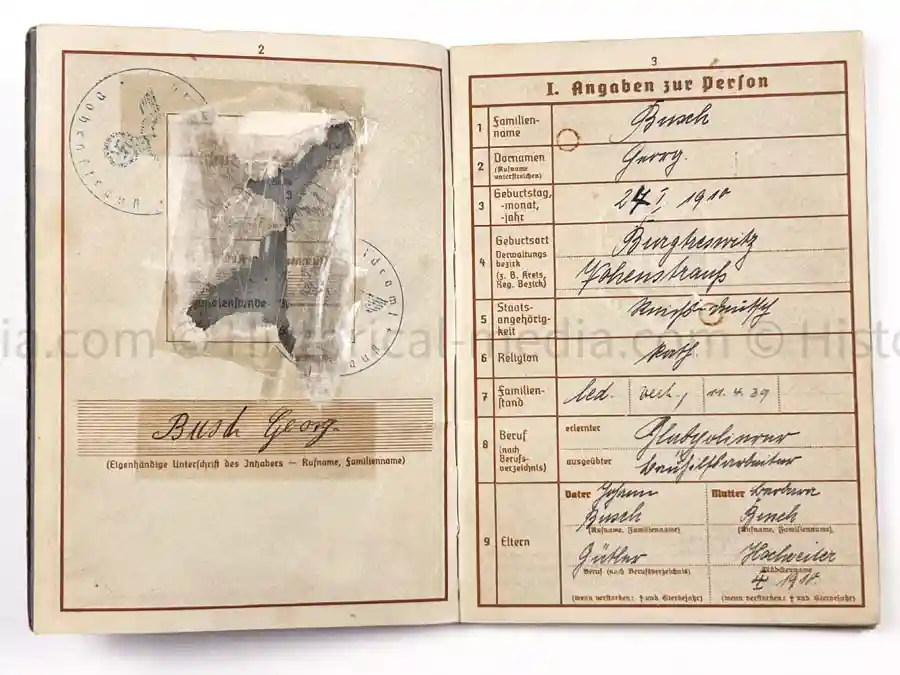 2
Busch Georg.
(Eigenhändige Unterschrift des Inhabers — Rufname, Familienname)
3
I. Angaben zur Person
1 Familien-
name
Busch
2 Vornamen
(Rufname
unterstreichen)
Georg.
3 Geburtstag,
-monat,
-jahr
24 I 1910
4 Geburtsort
Verwaltungs
bezirk
(z. B. Kreis,
Reg. Bezirk)
Burgtreswitz
Vohenstrauß
5 Staats-
angehörig-
keit
Reichs-deutsch
6 Religion
kath.
7 Familien-
stand
led. verh. 11.4.39
8 Beruf
(nach
Berufs-
verzeichnis)
erlernter
Glaspolierer
ausgeübter
Bauhilfsarbeiter
9 Eltern
Vater Johann
Busch
(Rufname, Familienname)
Gütler
Beruf (nach Berufsverzeichnis)
(wenn verstorben: † und Sterbejahr)
Mutter Barbara
Busch
(Rufname, Familienname)
Hochweiler
Mädchenname
1910.
(wenn verstorben: † und Sterbejahr)
© Historical-media.com © Histo